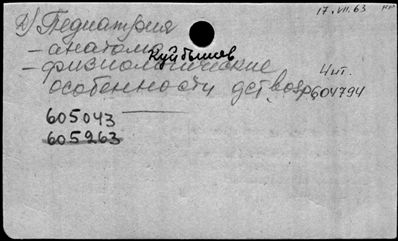 17.VII.63
2) Педиатрия
– анатомо
Куйбышев
– физиологические
4 шт.
особенности детс. возр.
604794
605043
605263